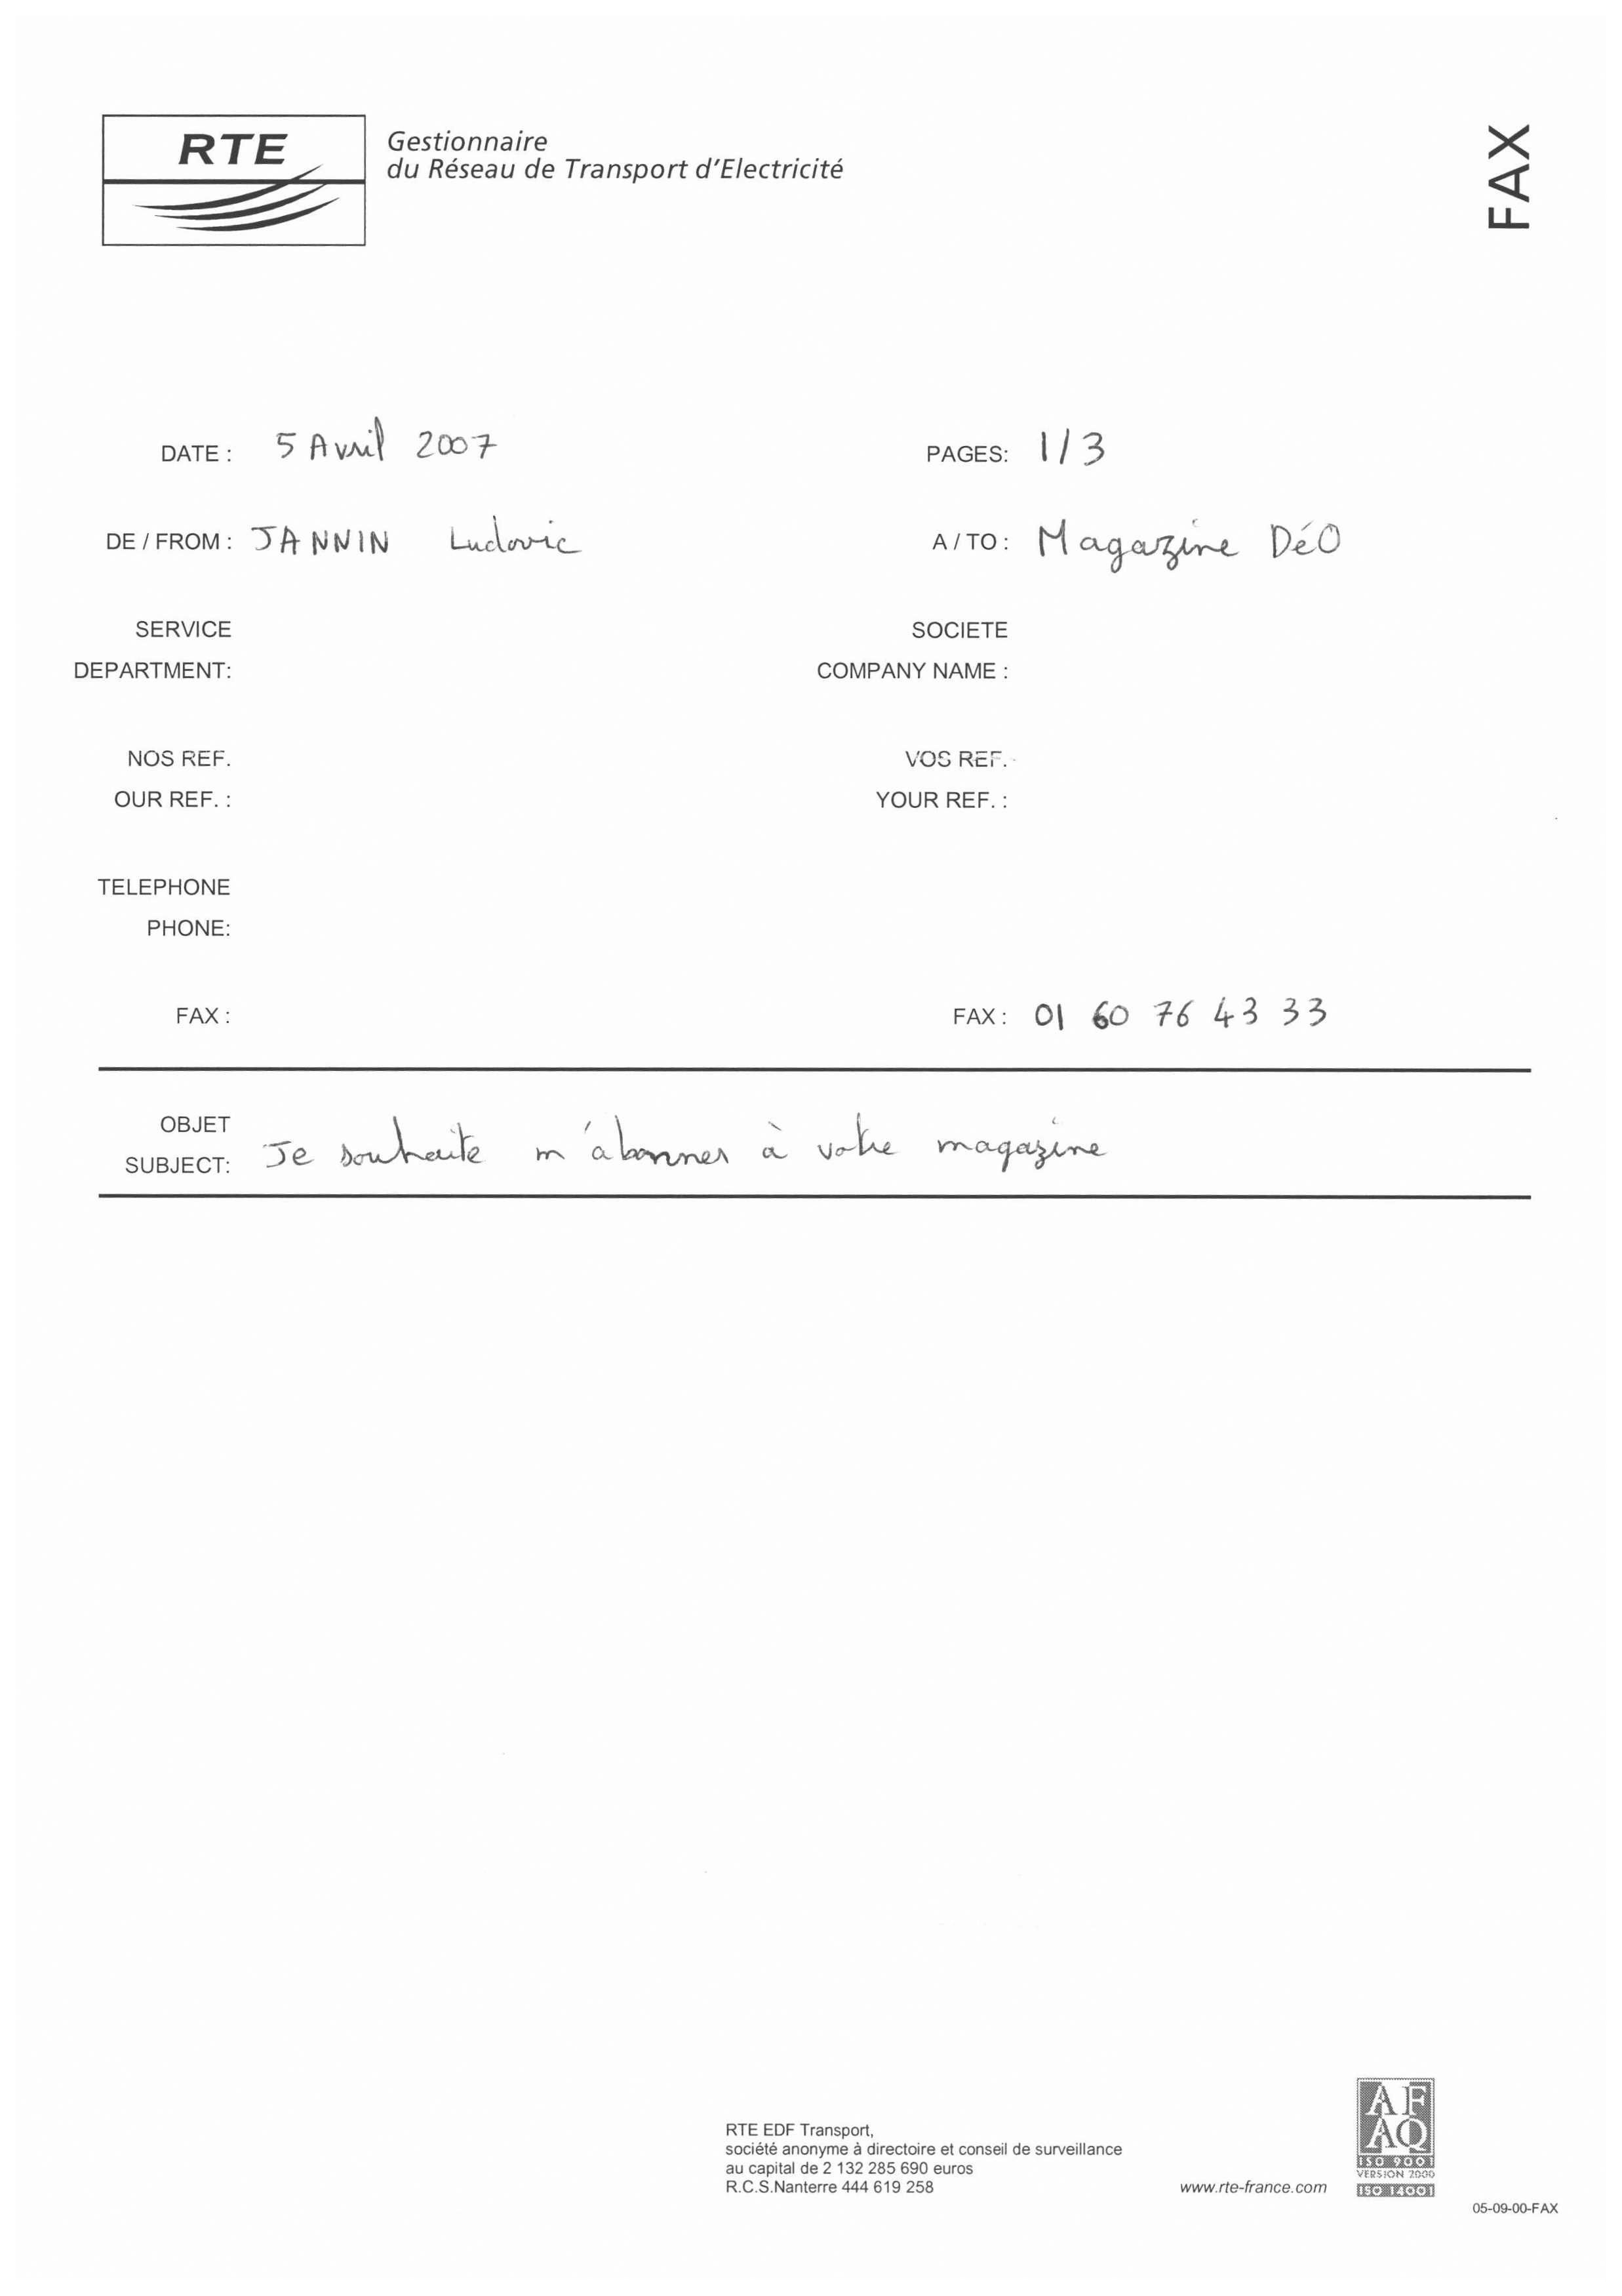 RTE
Gestionnaire
du Réseau de Transport d'Electricité
FAX
DATE : 5 Avril 2007
PAGES: 1/3
DE / FROM : JANNIN Ludovic
A / TO : Magazine DéO
SERVICE
DEPARTMENT:
SOCIETE
COMPANY NAME :
NOS REF.
OUR REF. :
VOS REF.
YOUR REF. :
TELEPHONE
PHONE:
FAX :
FAX : 01 60 76 43 33
OBJET
SUBJECT: Je souhaite m'abonner à votre magazine
RTE EDF Transport,
société anonyme à directoire et conseil de surveillance
au capital de 2 132 285 690 euros
R.C.S.Nanterre 444 619 258
www.rte-france.com
AF
AQ
ISO 9001
VERSION 2000
ISO 14001
05-09-00-FAX